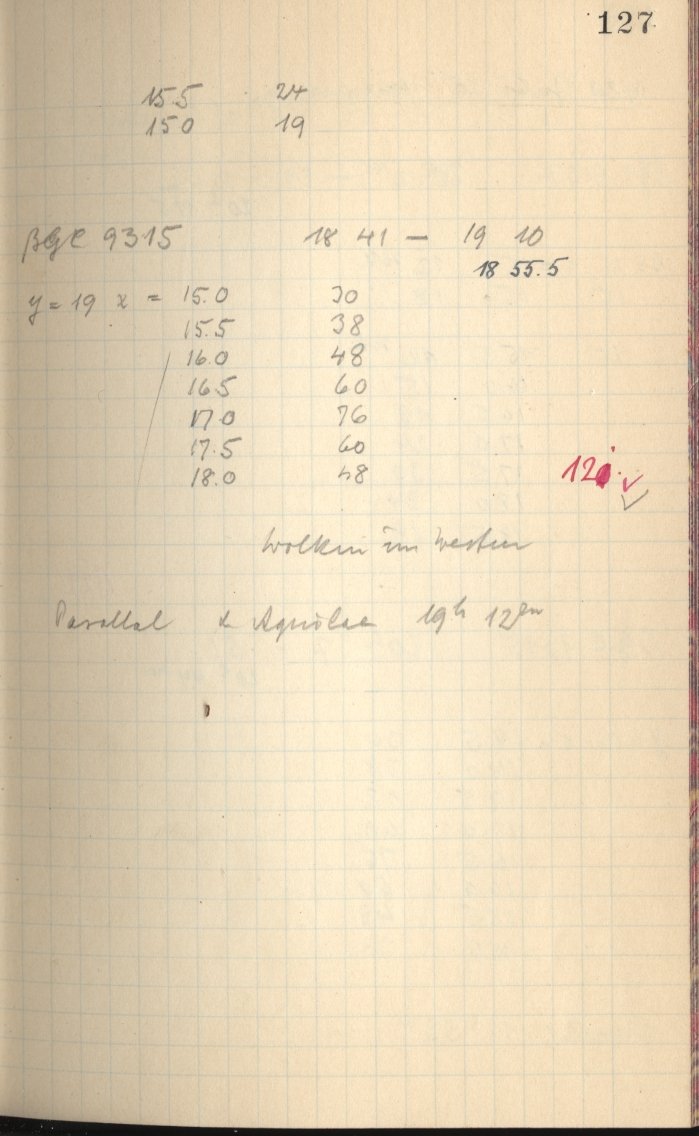 127
15.5 24
15 0 19
βGC 9315 18 41 — 19 10
18 55.5
y = 19 x = 15.0 30
15.5 38
16.0 48
16.5 60
17.0 76
17.5 60
18.0 48
12
Wolken im Westen
Parallel α Aquilae 19h 12m